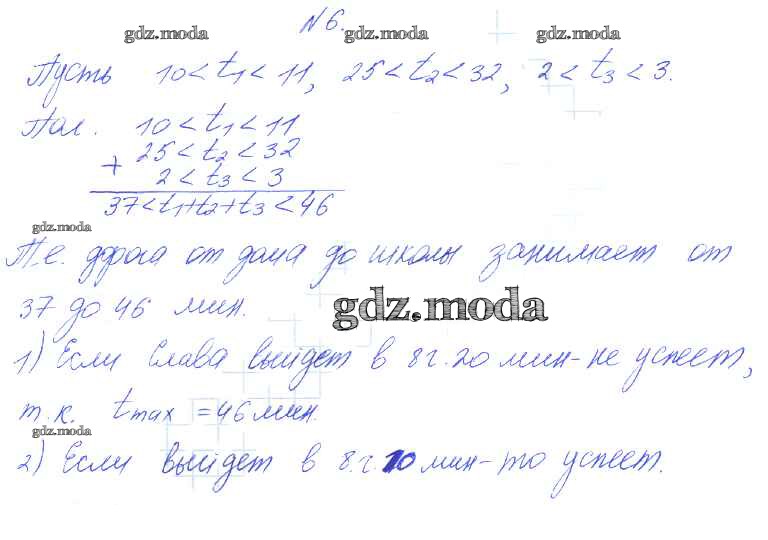 №6.
gdz.moda gdz.moda gdz.moda
Пусть 10 < t₁ < 11, 25 < t₂ < 32, 2 < t₃ < 3.
Пол. 10 < t₁ < 11
+ 25 < t₂ < 32
2 < t₃ < 3
37 < t₁ + t₂ + t₃ < 46
gdz.moda
Т.е. дорога от дома до школы занимает от
37 до 46 мин.
gdz.moda
1) Если Слава выйдет в 8 г. 20 мин - не успеет,
т.к. tmax = 46 мин.
gdz.moda
2) Если выйдет в 8.г. 10 мин - то успеет.